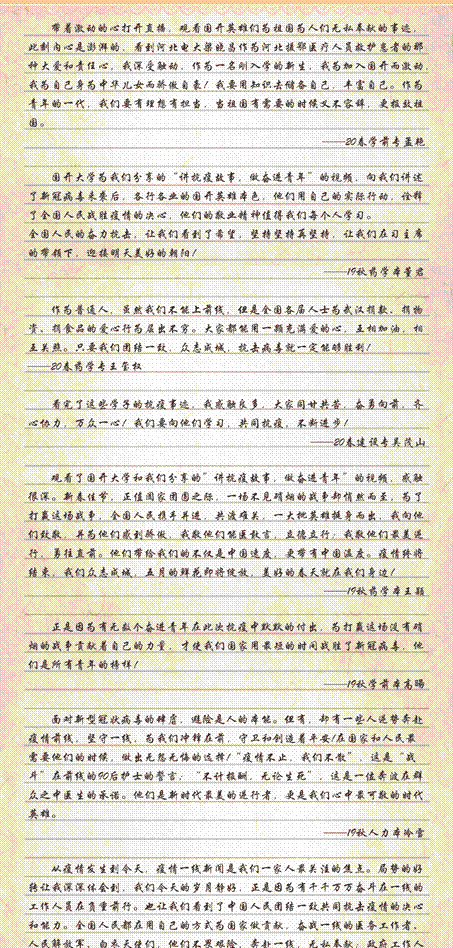 带着激动的心打开直播，观看国开英雄们为祖国为人们无私奉献的事迹，
此刻内心是澎湃的，看到河北电大梁晓昌作为河北援鄂医疗人员救护患者的那
种大爱和责任心，我深受触动，作为一名刚入学的新生，我为加入国开而激动，
我为自己身为中华儿女而骄傲自豪！我要用知识去储备自己，丰富自己。作为
青年的一代，我们要有理想有担当，当祖国有需要的时候义不容辞，更报效祖
国。
——20春学前专孟艳
国开大学为我们分享的“讲抗疫故事，做奋进青年”的视频，向我们讲述
了新冠病毒来袭后，各行各业的国开英雄本色，他们用自己的实际行动，诠释
了全国人民战胜疫情的决心，他们的敬业精神值得我们每个人学习。
全国人民的奋力抗击，让我们看到了希望，坚持坚持再坚持，让我们在习主席
的带领下，迎接明天美好的朝阳！
——19秋药学本董君
作为普通人，虽然我们不能上前线，但是全国各届人士为武汉捐款、捐物
资、捐食品的爱心行为层出不穷。大家都能用一颗充满爱的心，互相加油，相
互关照。只要我们团结一致，众志成城，抗击病毒就一定能够胜利！
——20春药学专王莹权
看完了这些学子的抗疫事迹，我感触良多，大家同甘共苦，奋勇向前，齐
心协力，万众一心！我们要向他们学习，共同抗疫，不断进步！
——20春建设专吴茂山
观看了国开大学和我们分享的“讲抗疫故事，做奋进青年”的视频，感触
很深。新春佳节，正值阖家团圆之际，一场不见硝烟的战争却悄然而至，为了
打赢这场战争，全国人民携手并进，共渡难关，一大批英雄挺身而出，我向他
们致敬，并为他们感到骄傲，我敬他们能医敢言，立德立行；我敬他们最美逆
行，勇往直前。他们带给我们的不仅是中国速度，更带有中国温度。疫情终将
结束，我们众志成城，五月的鲜花即将绽放，美好的春天就在我们身边！
——19秋药学本王颖
正是因为有无数个奋进青年在此次抗疫中默默的付出，为打赢这场没有硝
烟的战争贡献着自己的力量，才使我们国家用最短的时间战胜了新冠病毒，他
们是所有青年的榜样！
——19秋学前本高赐
面对新型冠状病毒的肆虐，避险是人的本能。但有，却有一些人逆势奔赴
疫情前线，坚守一线，为我们冲锋在前，守卫和创造着平安！在国家和人民最
需要他们的时候，做出无怨无悔的选择！“疫情不止，我们不散”，这是“战
斗”在前线的90后护士的誓言；“不计报酬，无论生死”，这是一位奔波在群
众之中医生的承诺。他们是新时代最美的逆行者，更是我们心中最可敬的时代
英雄。
——19秋人力本冷雪
从疫情发生到今天，疫情一线新闻是我们一家人最关注的焦点。局势的好
转让我深深体会到，我们今天的岁月静好，正是因为有千千万万奋斗在一线的
工作人员在负重前行。也让我们看到了中国人民团结一致共同抗击疫情的决心
和能力。全国人民都在用自己的方式为国家做贡献，奋战一线的医务工作者、
人民解放军、白衣天使们，他们不畏艰险，奔赴一线，无私奉献；政府工作人